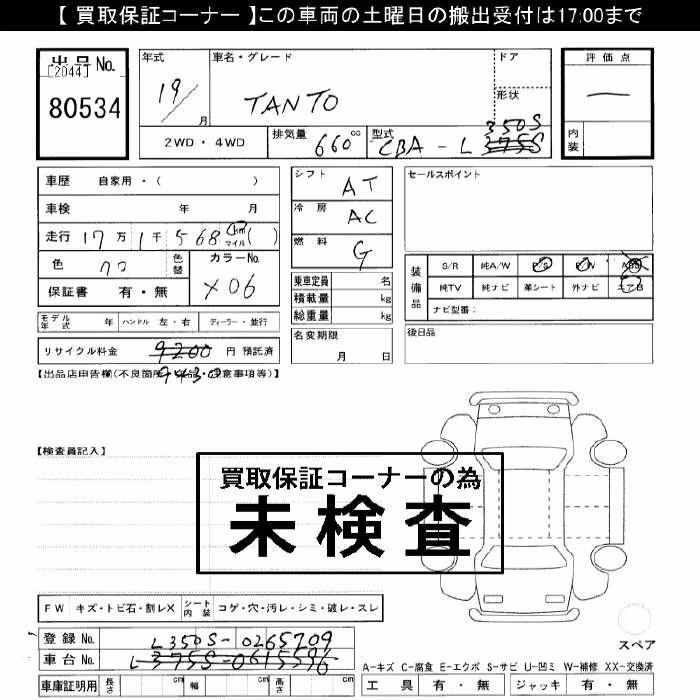 【 買取保証コーナー 】この車両の土曜日の搬出受付は17:00まで
出品 No.
[2044]
80534
年式
19/
月
車名・グレード
TANTO
ドア
形状
評価点
一
内装
2WD・4WD
排気量 660 cc
型式 CBA - L 375S
350S
車歴 自家用・( )
車検 年 月
走行 17万 1千 568 km マイル ( )
色 クロ
色替
カラーNo. X06
保証書 有・無
シフト AT
冷房 AC
燃料 G
乗車定員 名
積載量 kg
総重量 kg
セールスポイント
装備品
S/R 純A/W P/S P/W ABS
純TV 純ナビ 革シート 外ナビ エアB
ナビ型番：
モデル年式 年 ハンドル 左・右 ディーラー・並行
名変期限
月 日
後日品
リサイクル料金 9200 円 預託済
9430
【出品店申告欄(不良箇所・欠品・注意事項等)】
【検査員記入】
買取保証コーナーの為
未検査
FW キズ・トビ石・割レX
シート内装 コゲ・穴・汚レ・シミ・破レ・スレ
登録 No. L350S-0265709
車台 No. L375S-0615596
車庫証明用 長さ cm 幅 cm 高さ cm
スペア
A-キズ C-腐食 E-エクボ S-サビ U-凹ミ W-補修 XX-交換済
工具 有・無 ジャッキ 有・無